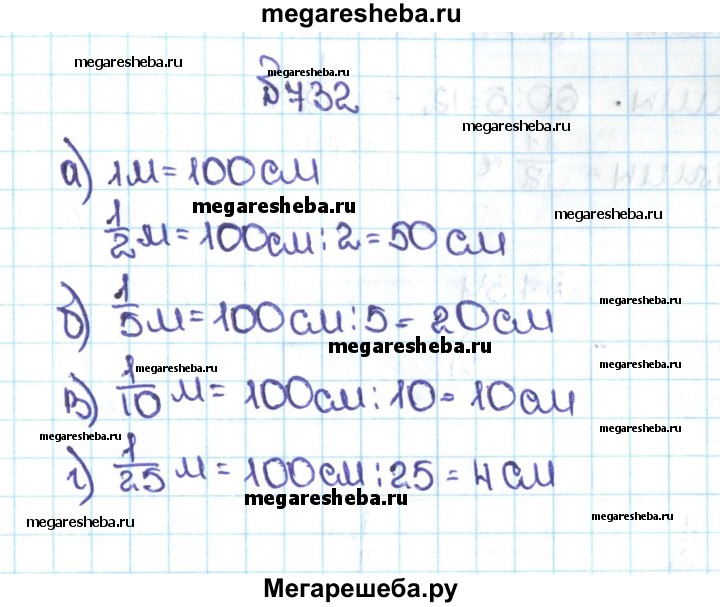 megaresheba.ru
megaresheba.ru
megaresheba.ru
№732
megaresheba.ru
а) 1м = 100см
megaresheba.ru
megaresheba.ru
1/2 м = 100см : 2 = 50 см
megaresheba.ru
б) 1/5 м = 100см : 5 = 20см
megaresheba.ru
megaresheba.ru
megaresheba.ru
в) 1/10 м = 100см : 10 = 10см
megaresheba.ru
megaresheba.ru
г) 1/25 м = 100см : 25 = 4 см
megaresheba.ru
megaresheba.ru
megaresheba.ru
Мегарешеба.ру